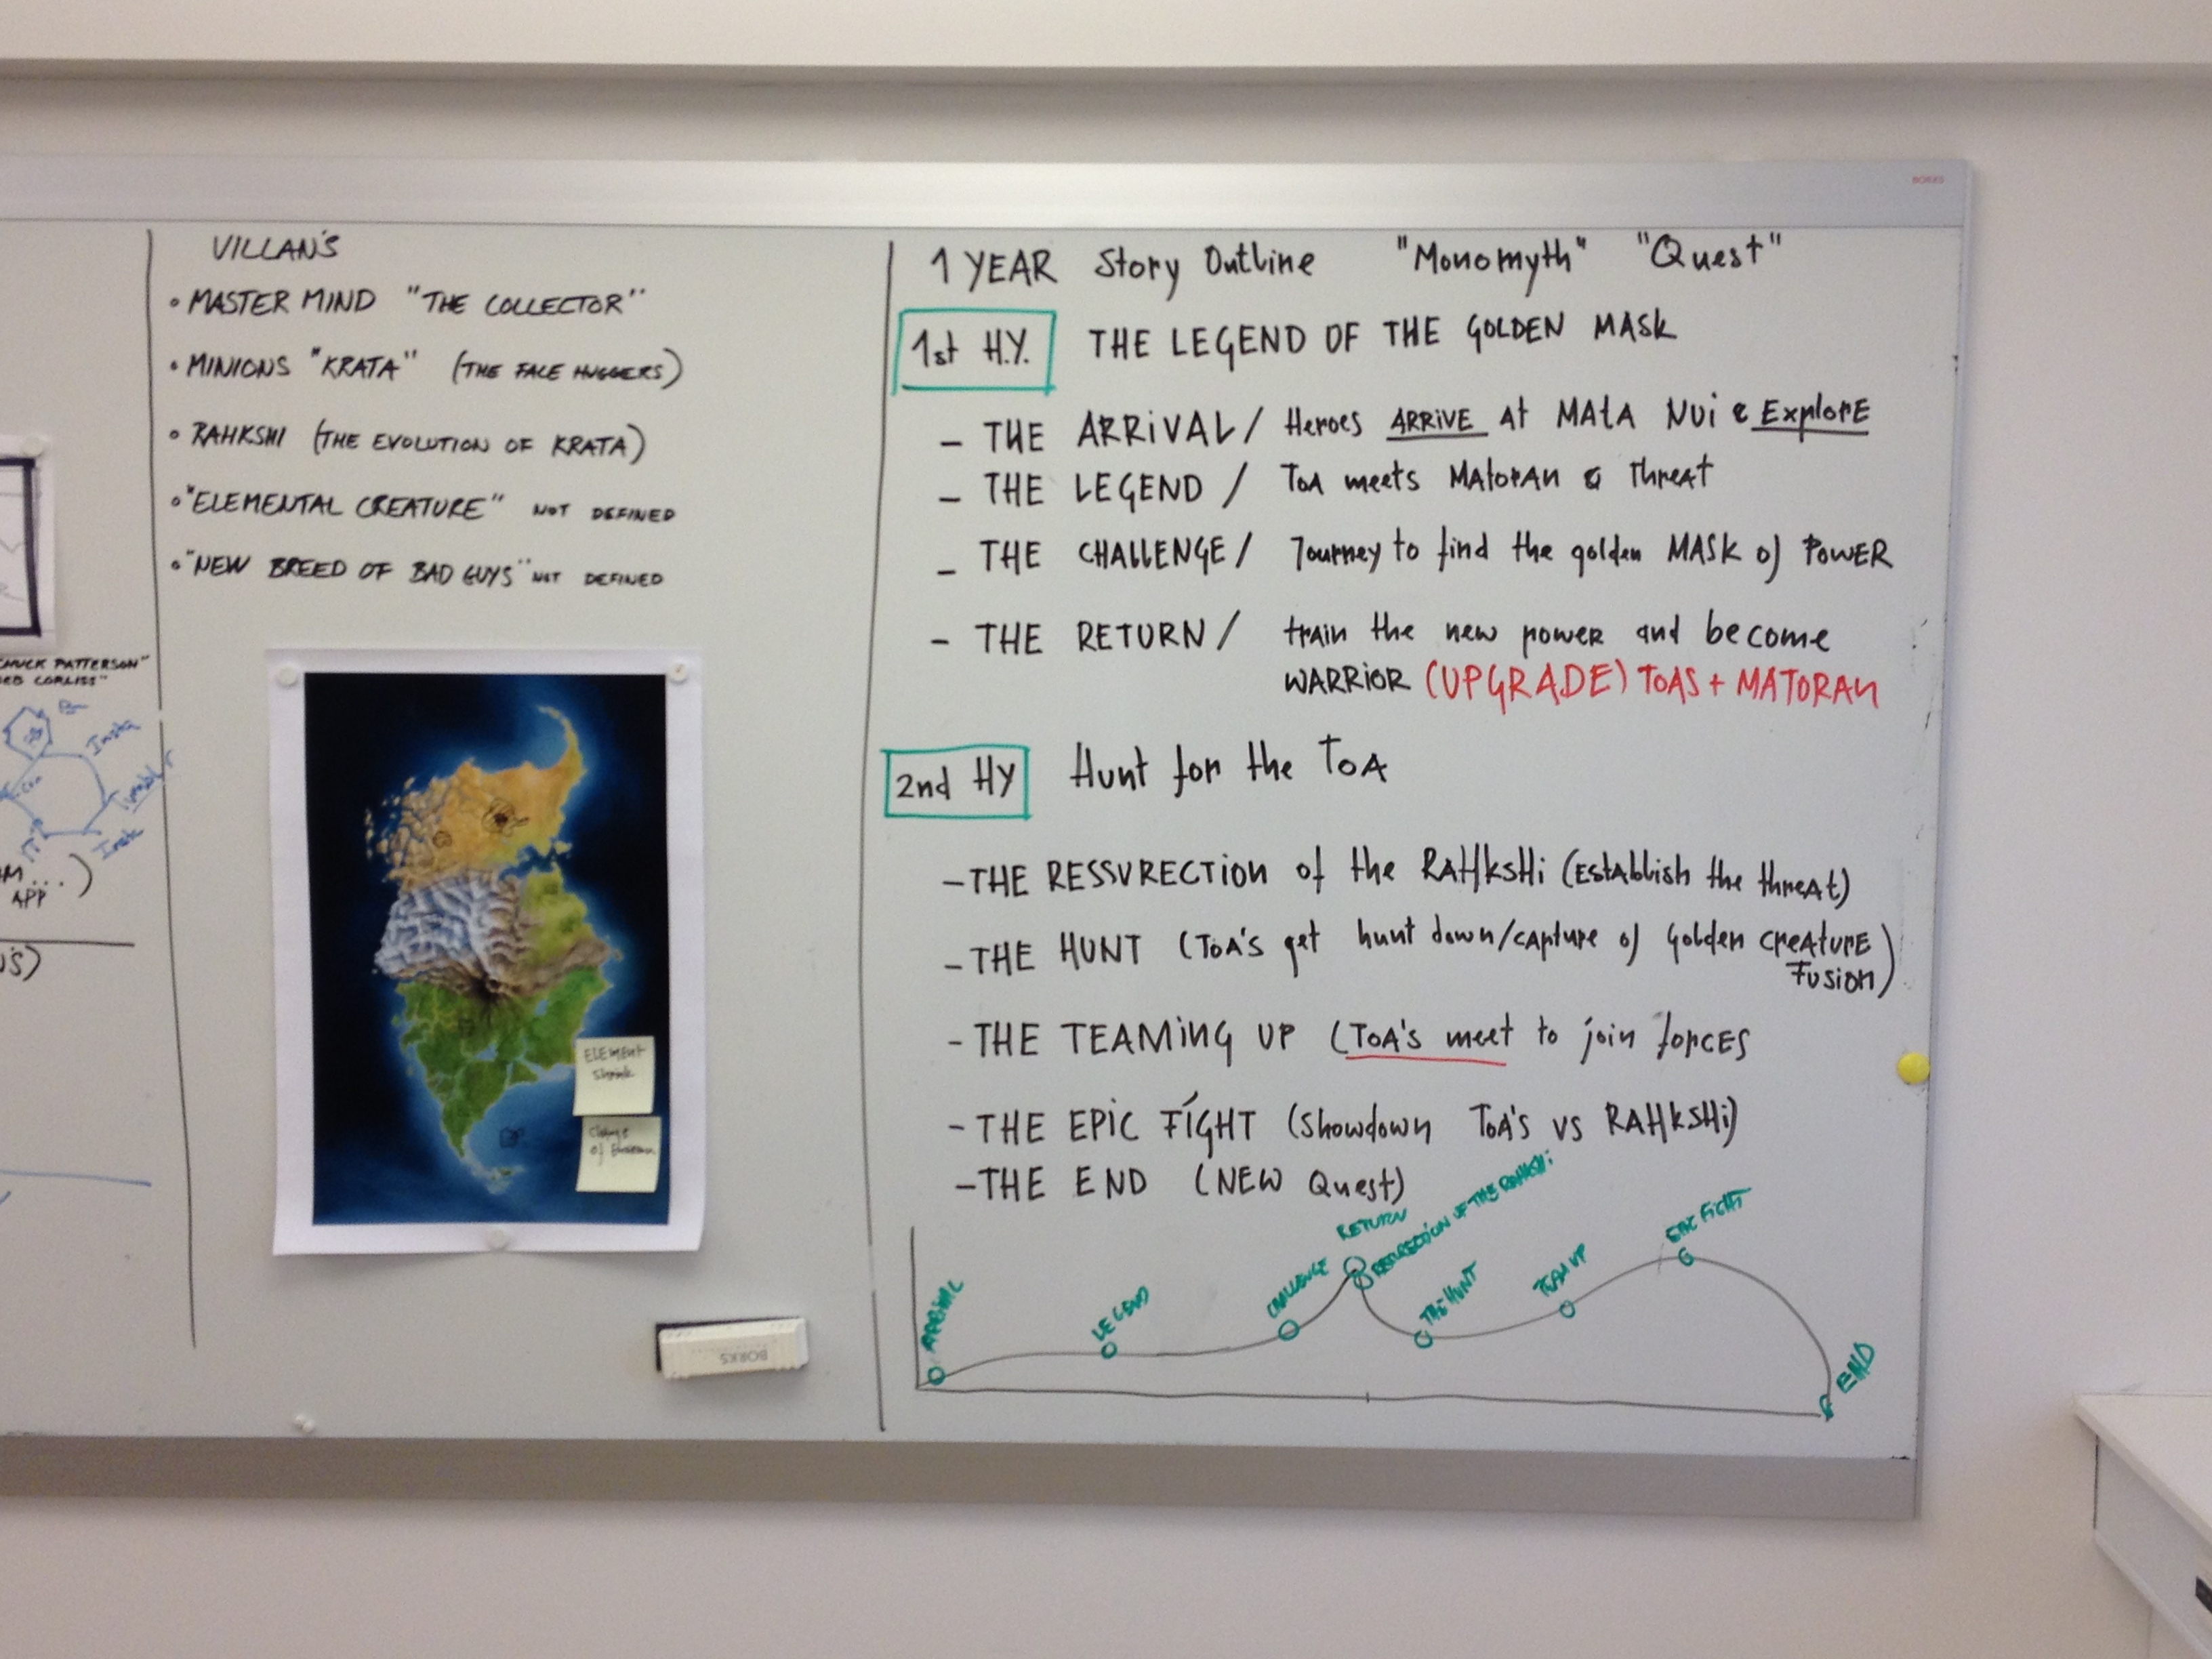 VILLAN'S
• MASTER MIND "THE COLLECTOR"
• MINIONS "KRATA" (THE FACE HUGGERS)
• RAHKSHI (THE EVOLUTION OF KRATA)
• "ELEMENTAL CREATURE" NOT DEFINED
• "NEW BREED OF BAD GUYS" NOT DEFINED
CHUCK PATTERSON"
CORLISS"
Insta
APP
ELEMENT
Change
of
BORKS
BORKS
1 YEAR Story Outline "Monomyth" "Quest"
1st H.Y. THE LEGEND OF THE GOLDEN MASK
- THE ARRIVAL / Heroes ARRIVE at MAtA NUi & ExplorE
- THE LEGEND / ToA meets MAtoRAN & thrEAt
- THE CHALLENGE / Journey to find the golden MASK of PoWER
- THE RETURN / train the new power and become
WARRIOR (UPGRADE) TOAS + MATORAN
2nd HY Hunt for the ToA
- THE RESSURECTION of the RAHkSHi (EstABLish the thrEAt)
- THE HUNT (ToA's get hunt down/capture of Golden CreAturE
Fusion)
- THE TEAMiNG UP (ToA's meet to join forCES
- THE EPIC FIGHT (Showdown ToA's vs RAHkSHi)
- THE END (NEW Quest)
ARRIVAL
LEGEND
CHALLENGE
RETURN
RESURECTION OF THE RAHKSHi
THE HUNT
TEAM UP
EPIC FIGHT
END